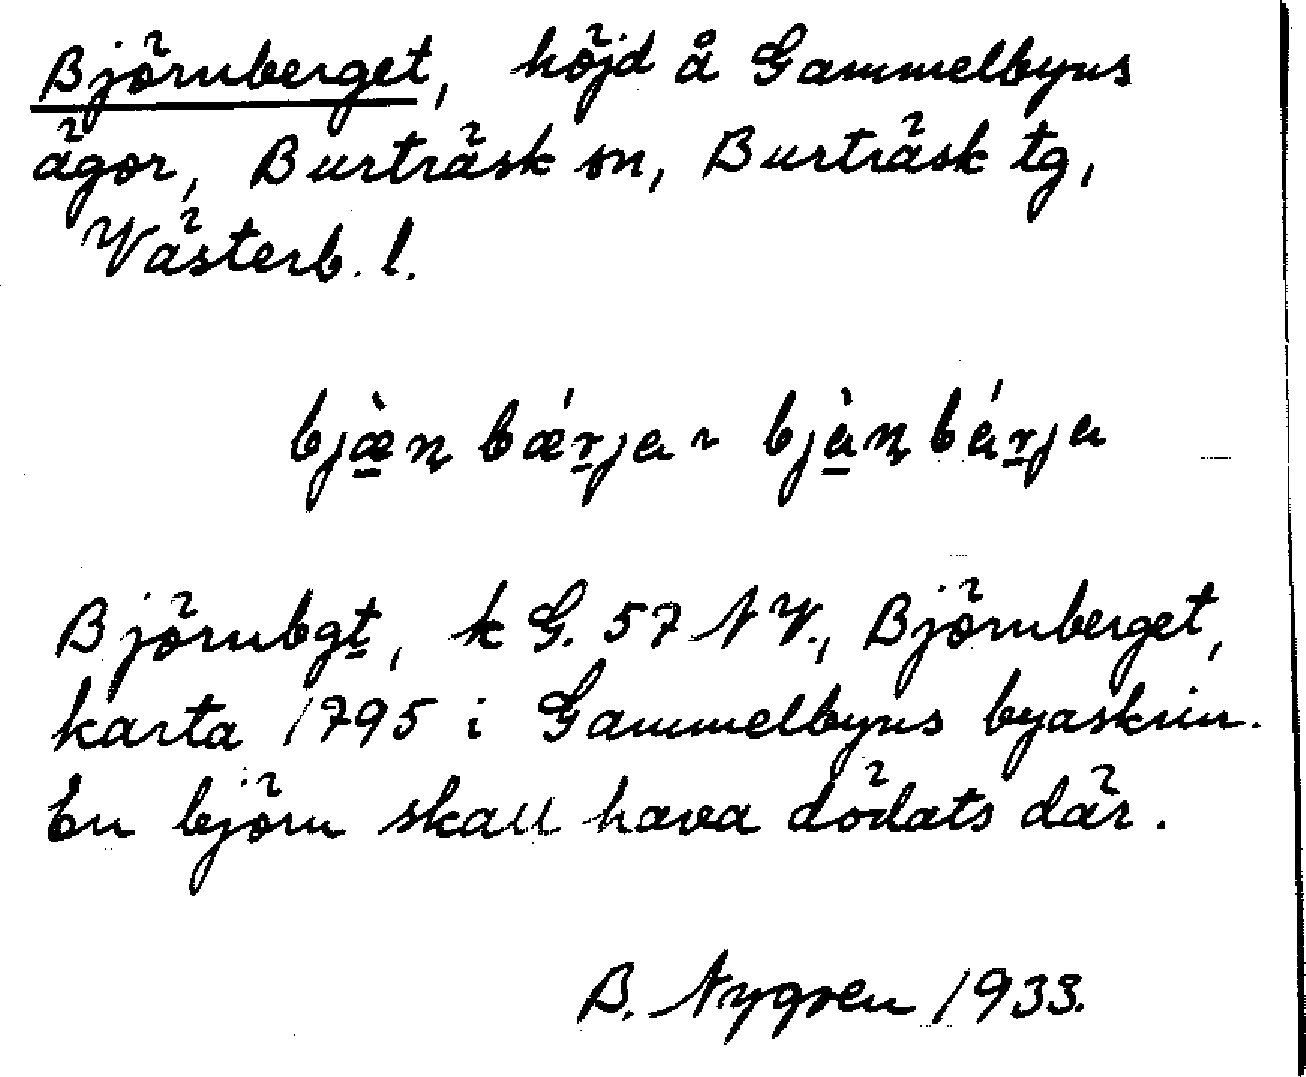 Björnberget, höjd å Gammelbyns
ägor, Burträsk sn, Burträsk tg,
Västerb. l.
bjæ̠̀n̥ bǽr̠ja ~ bjà̠n̥ bár̠ja
Björnbgt, k G. 57 NV., Björnberget,
karta 1795 i Gammelbyns byaskrin.
En björn skall hava dödats där.
B. Nygren 1933.